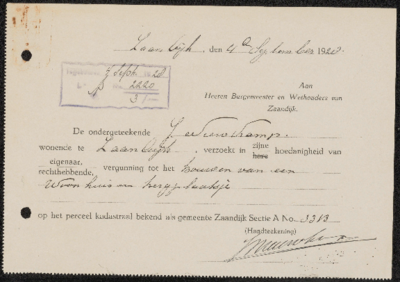 Zaandijk, den 4de September 1928.
5 Sept. 1928
2220
3
Aan
Heeren Burgemeester en Wethouders van
Zaandijk.
De ondergeteekende J. Nieuwkamp
wonende te Zaandijk, verzoekt in zijne hoedanigheid van
hare
eigenaar, vergunning tot het bouwen van een
rechthebbende,
Woonhuis en bergplaatsje
op het perceel kadastraal bekend als gemeente Zaandijk Sectie A No. 3313
(Handteekening)